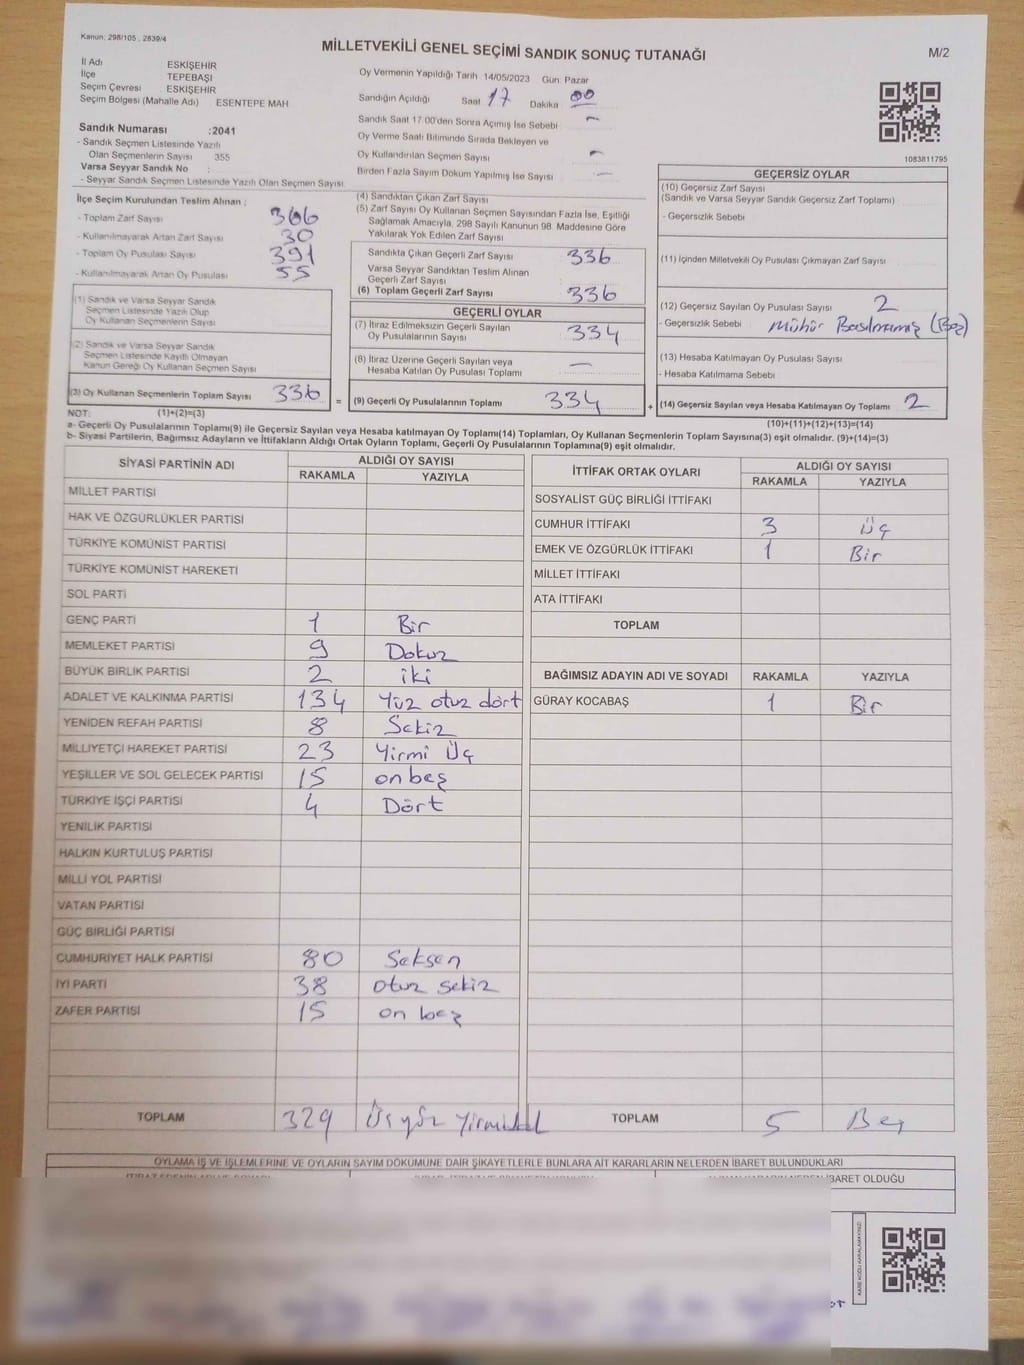 Kanun, 298/105 , 2839/4
MİLLETVEKİLİ GENEL SEÇİMİ SANDIK SONUÇ TUTANAĞI
M/2
İl Adı ESKİŞEHİR
İlçe TEPEBAŞI
Seçim Çevresi ESKİŞEHİR
Seçim Bölgesi (Mahalle Adı) ESENTEPE MAH
Sandık Numarası :2041
- Sandık Seçmen Listesinde Yazılı
Olan Seçmenlerin Sayısı 355
Varsa Seyyar Sandık No
- Seyyar Sandık Seçmen Listesinde Yazılı Olan Seçmen Sayısı
Oy Vermenin Yapıldığı Tarih 14/05/2023 Gün Pazar
Sandığın Açıldığı Saat 17 Dakika 00
Sandık Saat 17.00'den Sonra Açımış İse Sebebi –
Oy Verme Saati Bitiminde Sırada Bekleyen ve
Oy Kullandırılan Seçmen Sayısı –
Birden Fazla Sayım Döküm Yapılmış İse Sayısı –
1083811795
İlçe Seçim Kurulundan Teslim Alınan ;
- Toplam Zarf Sayısı 366
- Kullanılmayarak Artan Zarf Sayısı 30
- Toplam Oy Pusulası Sayısı 391
- Kullanılmayarak Artan Oy Pusulası 55
(1) Sandık ve Varsa Seyyar Sandık
Seçmen Listesinde Yazılı Olup
Oy Kullanan Seçmenlerin Sayısı
(2) Sandık ve Varsa Seyyar Sandık
Seçmen Listesinde Kayıtlı Olmayan
Kanun Gereği Oy Kullanan Seçmen Sayısı
(3) Oy Kullanan Seçmenlerin Toplam Sayısı 336
(4) Sandıktan Çıkan Zarf Sayısı
(5) Zarf Sayısı Oy Kullanan Seçmen Sayısından Fazla İse, Eşitliği
Sağlamak Amacıyla, 298 Sayılı Kanunun 98. Maddesine Göre
Yakılarak Yok Edilen Zarf Sayısı
Sandıkta Çıkan Geçerli Zarf Sayısı 336
Varsa Seyyar Sandıktan Teslim Alınan
Geçerli Zarf Sayısı
(6) Toplam Geçerli Zarf Sayısı 336
GEÇERLİ OYLAR
(7) İtiraz Edilmeksizin Geçerli Sayılan
Oy Pusulalarının Sayısı 334
(8) İtiraz Üzerine Geçerli Sayılan veya
Hesaba Katılan Oy Pusulası Toplamı –
= (9) Geçerli Oy Pusulalarının Toplamı 334
GEÇERSİZ OYLAR
(10) Geçersiz Zarf Sayısı
(Sandık ve Varsa Seyyar Sandık Geçersiz Zarf Toplamı)
- Geçersizlik Sebebi
(11) İçinden Milletvekili Oy Pusulası Çıkmayan Zarf Sayısı
(12) Geçersiz Sayılan Oy Pusulası Sayısı 2
- Geçersizlik Sebebi Mühür Basılmamış (Boş)
(13) Hesaba Katılmayan Oy Pusulası Sayısı
- Hesaba Katılmama Sebebi
+ (14) Geçersiz Sayılan veya Hesaba Katılmayan Oy Toplamı 2
NOT: (1)+(2)=(3)
(10)+(11)+(12)+(13)=(14)
a- Geçerli Oy Pusulalarının Toplamı(9) ile Geçersiz Sayılan veya Hesaba katılmayan Oy Toplamı(14) Toplamları, Oy Kullanan Seçmenlerin Toplam Sayısına(3) eşit olmalıdır. (9)+(14)=(3)
b- Siyasi Partilerin, Bağımsız Adayların ve İttifakların Aldığı Ortak Oyların Toplamı, Geçerli Oy Pusulalarının Toplamına(9) eşit olmalıdır.
SİYASİ PARTİNİN ADI ALDIĞI OY SAYISI
RAKAMLA YAZIYLA
MİLLET PARTİSİ
HAK VE ÖZGÜRLÜKLER PARTİSİ
TÜRKİYE KOMÜNİST PARTİSİ
TÜRKİYE KOMÜNİST HAREKETİ
SOL PARTİ
GENÇ PARTİ 1 Bir
MEMLEKET PARTİSİ 9 Dokuz
BÜYÜK BİRLİK PARTİSİ 2 iki
ADALET VE KALKINMA PARTİSİ 134 Yüz otuz dört
YENİDEN REFAH PARTİSİ 8 Sekiz
MİLLİYETÇİ HAREKET PARTİSİ 23 Yirmi Üç
YEŞİLLER VE SOL GELECEK PARTİSİ 15 on beş
TÜRKİYE İŞÇİ PARTİSİ 4 Dört
YENİLİK PARTİSİ
HALKIN KURTULUŞ PARTİSİ
MİLLİ YOL PARTİSİ
VATAN PARTİSİ
GÜÇ BİRLİĞİ PARTİSİ
CUMHURİYET HALK PARTİSİ 80 Seksen
İYİ PARTİ 38 otuz sekiz
ZAFER PARTİSİ 15 on beş
TOPLAM 329 Üçyüz
İTTİFAK ORTAK OYLARI ALDIĞI OY SAYISI
RAKAMLA YAZIYLA
SOSYALİST GÜÇ BİRLİĞİ İTTİFAKI
CUMHUR İTTİFAKI 3 Üç
EMEK VE ÖZGÜRLÜK İTTİFAKI 1 Bir
MİLLET İTTİFAKI
ATA İTTİFAKI
TOPLAM
BAĞIMSIZ ADAYIN ADI VE SOYADI RAKAMLA YAZIYLA
GÜRAY KOCABAŞ 1 Bir
TOPLAM 5 Beş
OYLAMA İŞ VE İŞLEMLERİNE VE OYLARIN SAYIM DÖKÜMÜNE DAİR ŞİKAYETLERLE BUNLARA AİT KARARLARIN NELERDEN İBARET BULUNDUKLARI
İBARET OLDUĞU